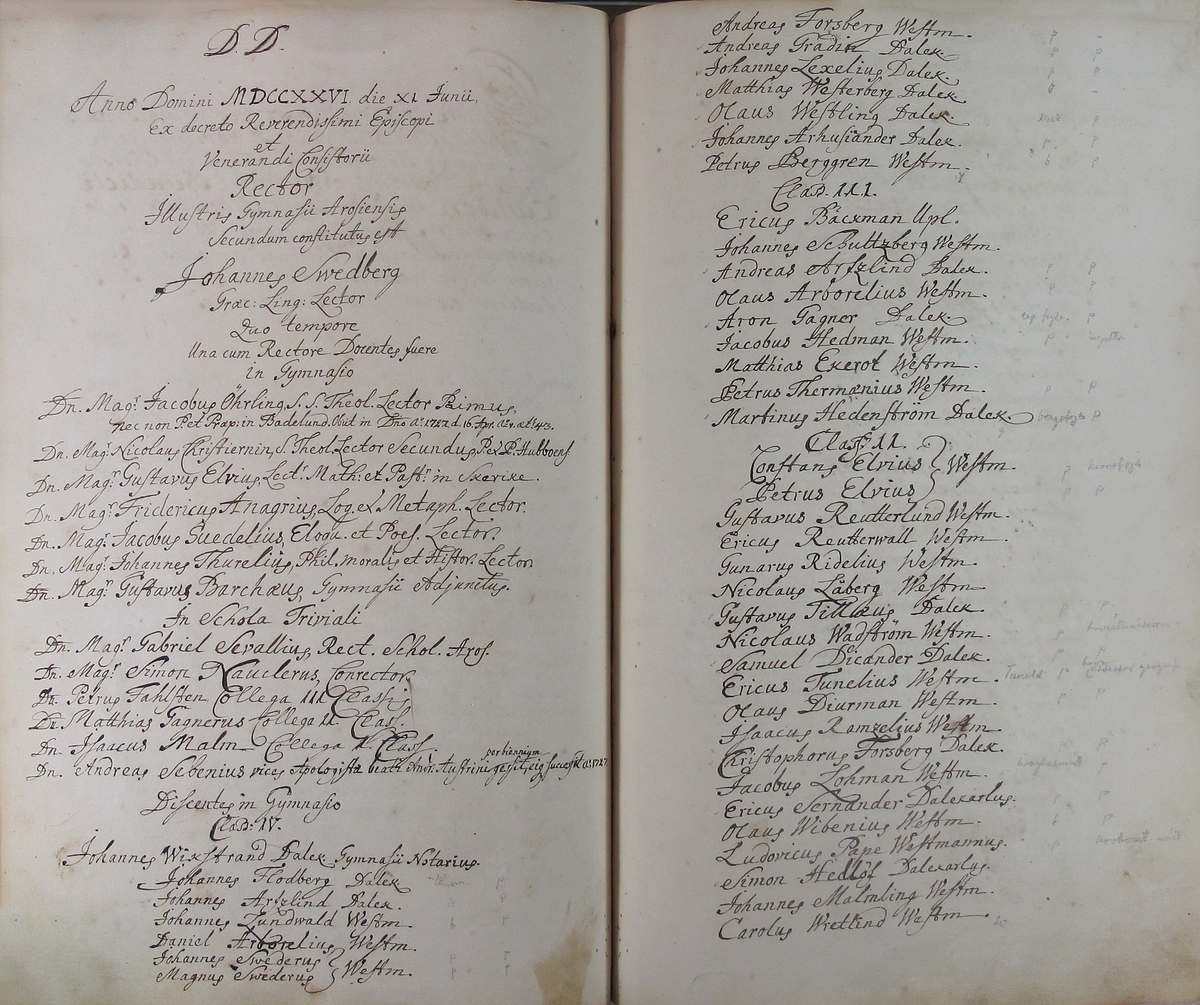 D D.
Anno Domini MDCCXXVI die XI Junii,
Ex decreto Reverendissimi Episcopi
et
Venerandi Consistorii
Rector
Illustris Gymnasii Arosiensis
Secundum constitutus est
Johannes Swedberg
Græc: Ling: Lector
Quo tempore
Una cum Rectore Docentes fuere
in Gymnasio
Dn. Magr. Jacobus Öhrling, S. S. Theol. Lector Primus,
nec non Pet. Præp: in Badelund. Obiit in Dno Ao. 1727. d. 16. Apr.
Dn. Magr. Nicolaus Christiernin, S. Theol. Lector Secundus, P. et P. Hubboens
Dn. Magr. Gustavus Elvius, Lect. Math: et Pastr. in Skerike.
Dn. Magr. Fridericus Anagrius, Log. et Metaph. Lector.
Dn. Magr. Jacobus Suedelius, Eloqu. et Poes. Lector.
Dn. Magr. Johannes Thurelius, Phil. moralis et Histor. Lector
Dn. Magr. Gustavus Barchæus, Gymnasii Adjunctus.
In Schola Triviali
Dn. Magr. Gabriel Sevallius, Rect. Schol. Aros.
Dn. Magr. Simon Nauclerus, Conrector.
Dn. Petrus Fahlsten Collega III Classis
Dn. Matthias Gagnerus Collega II. Class.
Dn. Isaacus Malm Collega I. Class.
Dn. Andreas Sebenius vices Apologistæ beati Andr. Austrini per biennium gessit, eig success. Ao. 1727
Discentes in Gymnasio
Class: IV.
Johannes Wixstrand Dalek. Gymnasii Notarius.
Johannes Flodberg Dalek
Johannes Arszlind Dalek.
Johannes Lundwald Westm.
Daniel Arborelius Westm.
Johannes Swederus
Magnus Swederus } Westm.
Andreas Forsberg Westm.
Andreas Gradin Dalek.
Johannes Lexelius Dalek.
Matthias Westerberg Dalek.
Olaus Westling Dalek.
Johannes Arhusiander Dalek.
Petrus Berggren Westm.
Class. III.
Ericus Bäckman Upl.
Johannes Schultzberg Westm.
Andreas Arszlind Dalek.
Olaus Arborelius Westm.
Aron Gagner Dalek.
Jacobus Hedman Westm.
Matthias Exerot Westm.
Petrus Thermænius Westm.
Martinus Hedenström Dalek.
Class. II.
Constans Elvius
Petrus Elvius } Westm.
Gustavus Reutterlund Westm.
Ericus Reutterwall Westm.
Gunarus Ridelius Westm.
Nicolaus Låberg Westm.
Gustavus Tillæus Dalek.
Nicolaus Wadström Westm.
Samuel Dicander Dalek.
Ericus Tunelius Westm.
Olaus Diurman Westm.
Isaacus Ramzelius Westm.
Christophorus Forsberg Dalek.
Jacobus Lohman Westm.
Ericus Sernander Dalekarlus.
Olaus Wibenius Westm.
Ludovicus Pape Westmannus.
Simon Hedlöf Dalekarlus.
Johannes Malmling Westm.
Carolus Wretlind Westm.